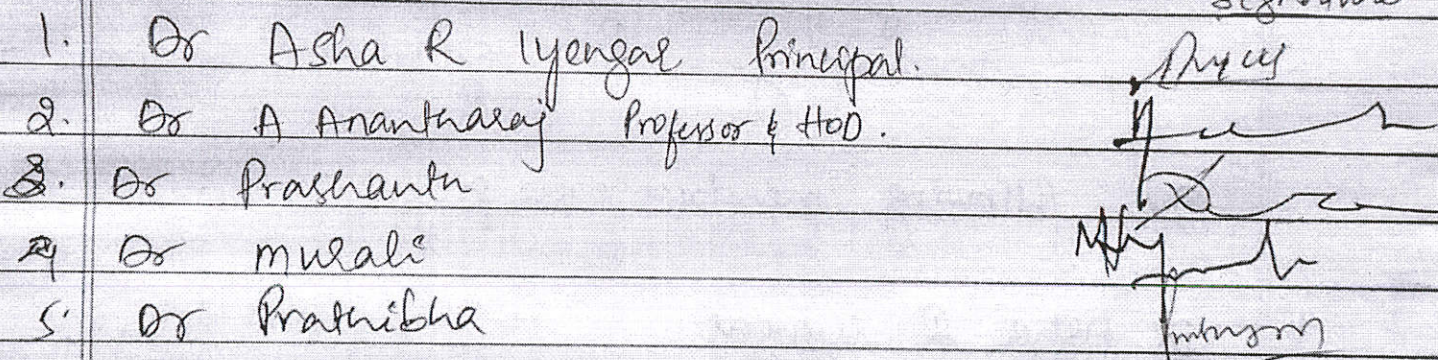 Signature
1. Dr Asha R Iyengar Principal.
2. Dr A Anantharaj Professor & HOD.
3. Dr Prashanth
4 Dr Murali
5. Dr Prathibha